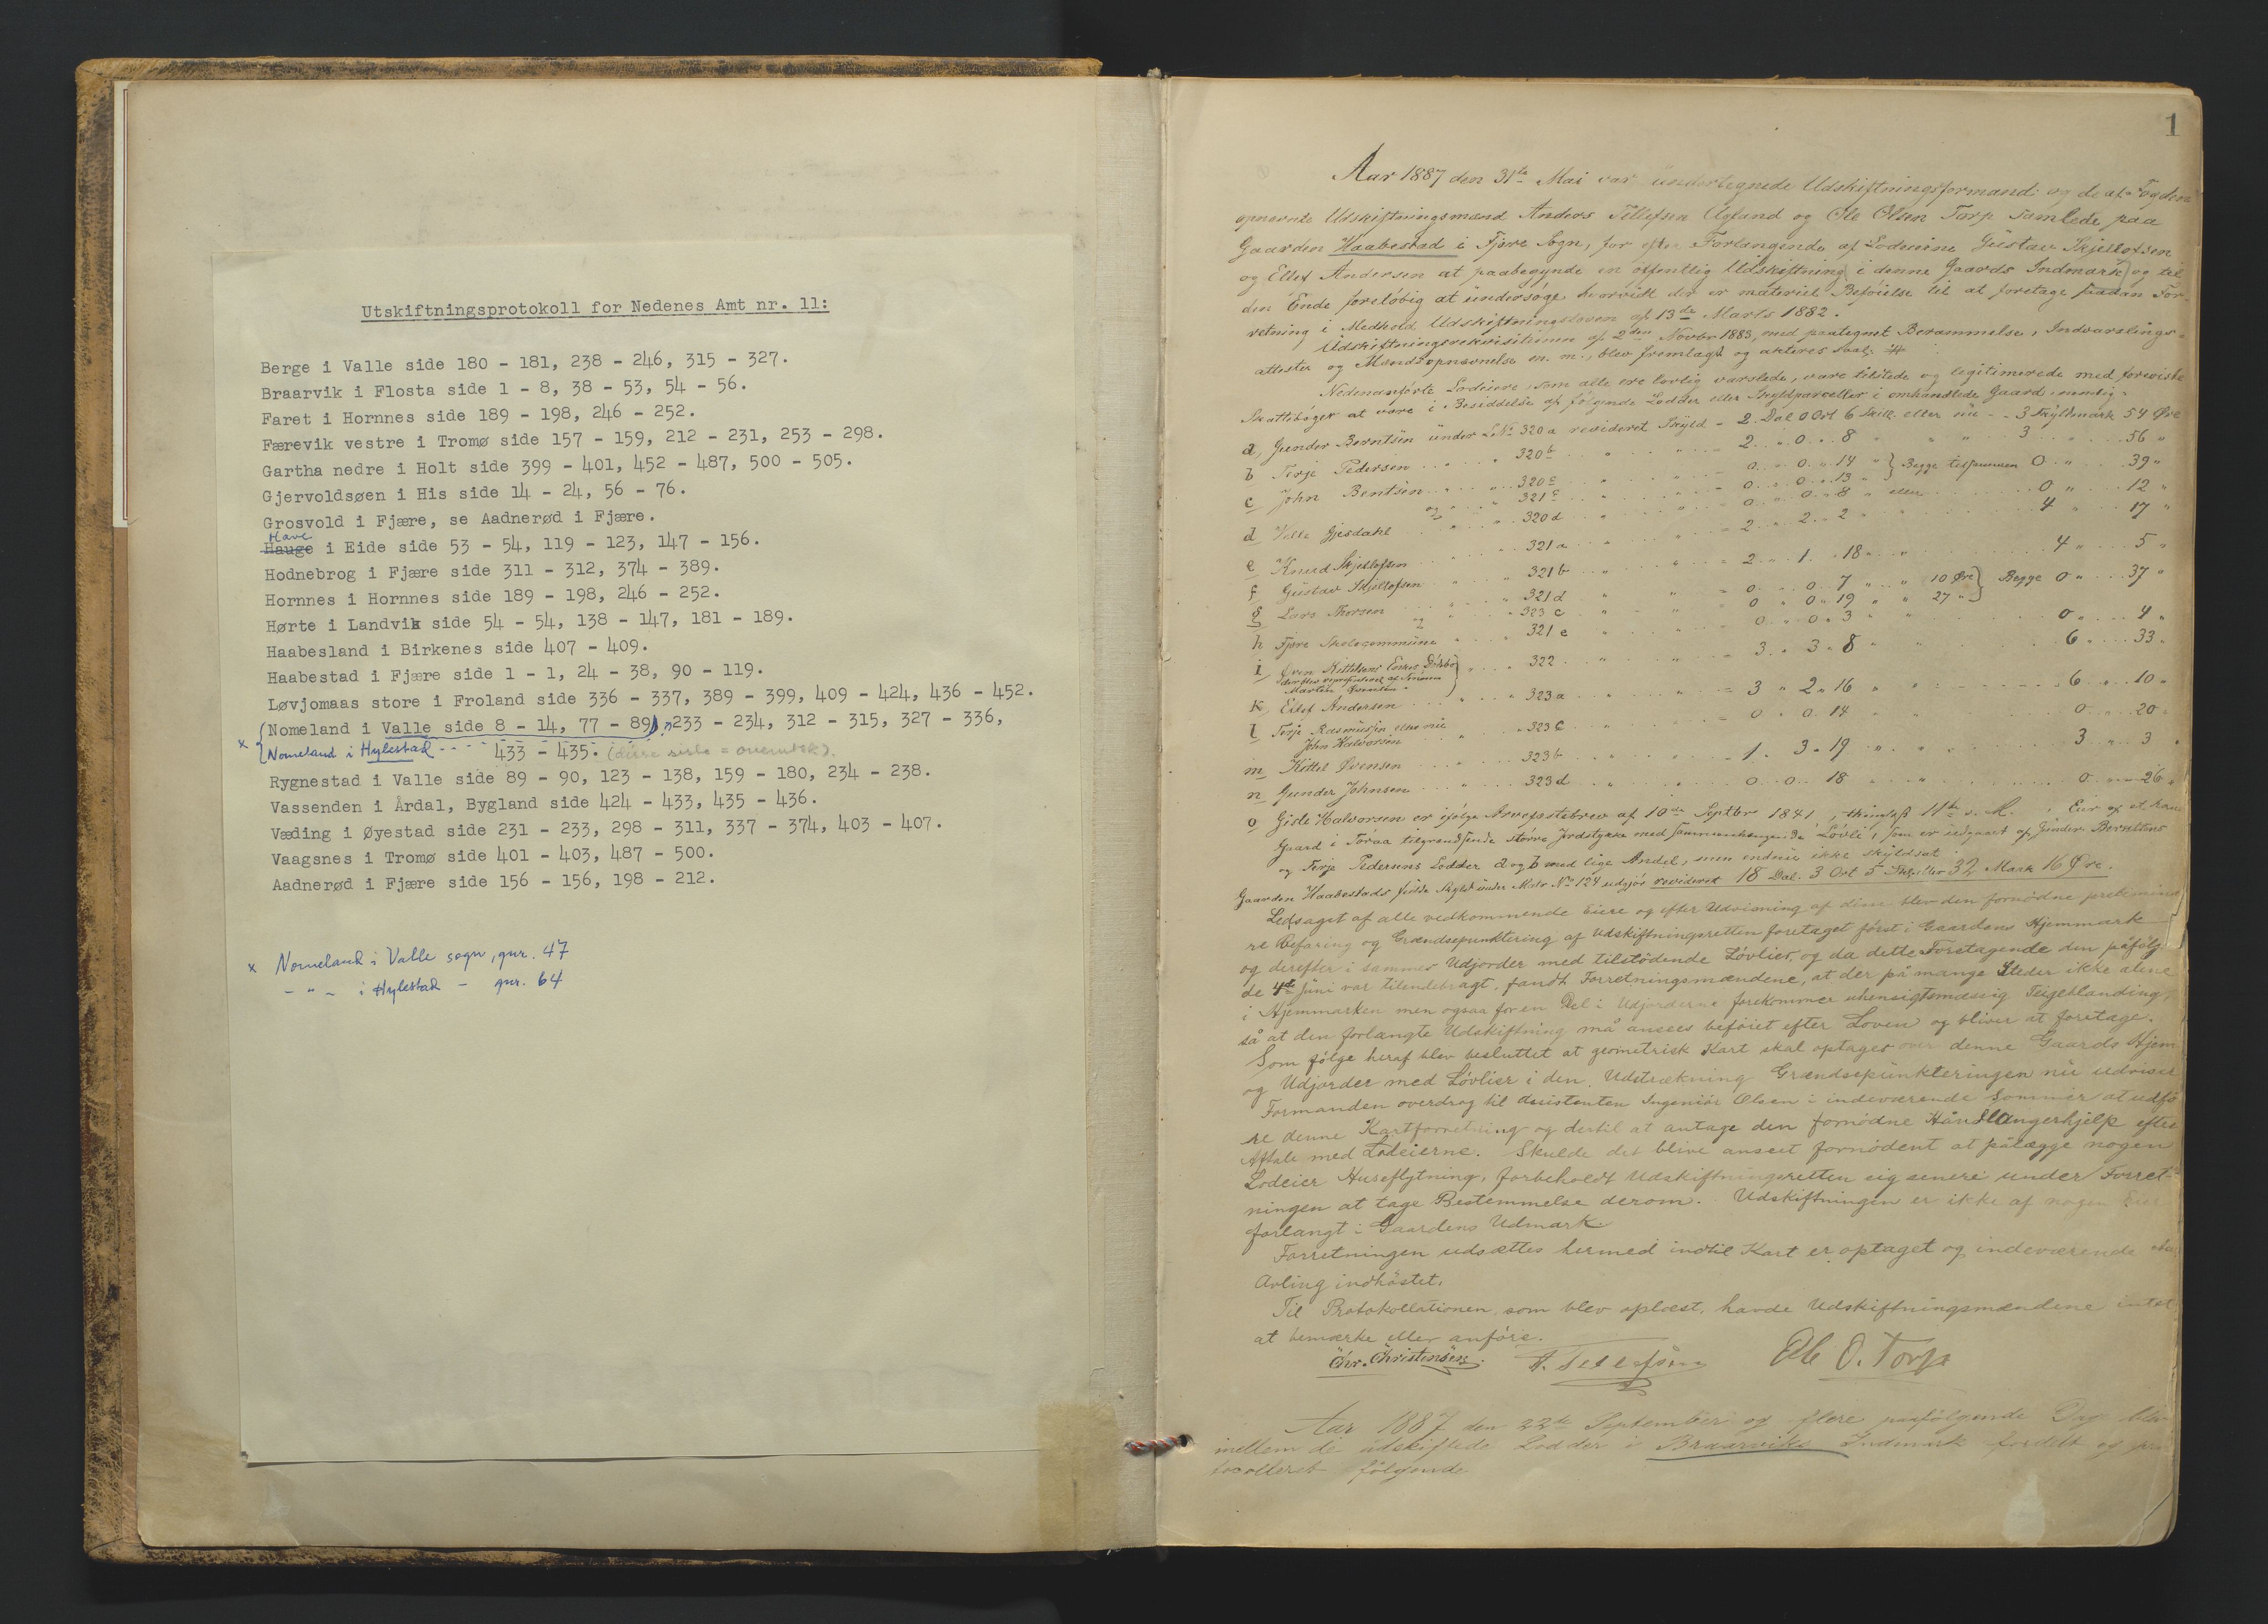 Utskiftningsprotokoll for Nedenes Amt nr. 11:
Berge i Valle side 180 - 181, 238 - 246, 315 - 327.
Braarvik i Flosta side 1 - 8, 38 - 53, 54 - 56.
Faret i Hornnes side 189 - 198, 246 - 252.
Færevik vestre i Tromø side 157 - 159, 212 - 231, 253 - 298.
Gartha nedre i Holt side 399 - 401, 452 - 487, 500 - 505.
Gjervoldsøen i His side 14 - 24, 56 - 76.
Grosvold i Fjære, se Aadnerød i Fjære.
Have
Hauge i Eide side 53 - 54, 119 - 123, 147 - 156.
Hodnebrog i Fjære side 311 - 312, 374 - 389.
Hornnes i Hornnes side 189 - 198, 246 - 252.
Hørte i Landvik side 54 - 54, 138 - 147, 181 - 189.
Haabesland i Birkenes side 407 - 409.
Haabestad i Fjære side 1 - 1, 24 - 38, 90 - 119.
Løvjomaas store i Froland side 336 - 337, 389 - 399, 409 - 424, 436 - 452.
(Nomeland i Valle side 8 - 14, 77 - 89), 233 - 234, 312 - 315, 327 - 336,
x Nomeland i Hylestad - - - - 433 - 435. (disse siste = overutsk).
Rygnestad i Valle side 89 - 90, 123 - 138, 159 - 180, 234 - 238.
Vassenden i Årdal, Bygland side 424 - 433, 435 - 436.
Væding i Øyestad side 231 - 233, 298 - 311, 337 - 374, 403 - 407.
Vaagsnes i Tromø side 401 - 403, 487 - 500.
Aadnerød i Fjære side 156 - 156, 198 - 212.
x Nomeland i Valle sogn, gnr. 47
- " - i Hylestad - gnr. 64
1
Aar 1887 den 31te Mai var undertegnede Udskiftningsformand og de af Fogden
opnævnte Udskiftningsmænd Anders Tellefsen Ugland og Ole Olsen Torp samlede paa
Gaarden Haabestad i Fjære Sogn, for efter Forlangende af Lodeierne Gustav Skjellofsen
og Ellef Andersen at paabegynde en offentlig Udskiftning i denne Gaards Indmark og til
den Ende foreløbig at undersøge hvorvidt der er materiel Beføielse til at foretage saadan For-
retning i Medhold Udskiftningsloven af 13de Marts 1882.
Udskiftningsrekvisitionen af 2den Novbr 1883, med paategnet Berammelse, Indvarslings-
attester og Mændsopnævnelse m. m., blev fremlagt og akteres
Nedenanførte Lodeiere, som alle ere lovlig varslede, vare tilstede og legitimerede med foreviste
Skattebøger at være i Besiddelse af følgende Lodder eller Skyldparceller i omhandlede Gaard, nemlig:
a, Gunder Berntsen under LNo 320a revideret Skyld - 2 Dal 0 Ort 6 Skill. eller nu - - 3 Skyldmark 54 Øre
b Terje Pedersen 320b 2 " 0 " 8 " 3 56 "
c John Bentsen 320c 0 " 0 " 14 " } Begge tilsammen 0 " 39 "
og 321c 0 " 0 " 13 "
d Vilh Gjesdahl 320d 0 " 0 " 8 " eller 0 " 12 "
e Knud Skjellofsen 321a 2 " 2 " 2 4 " 17 "
f Gustav Skjellofsen 321b 2 " 1 " 18 " 4 " 5 "
g Lars Thorsen 321d 0 " 0 " 7 " 10 Øre } Begge 0 " 37 "
og 323c 0 " 0 " 19 " 27 "
h Fjære Skolecommune 321e 0 " 0 " 3 " 0 " 4 "
i Øven Kittelsens Enkes Dødsbo 322 3 " 3 " 8 6 " 33 "
der blev repræsenteret af Sønnen
Martin Øvensen
k, Ellef Andersen 323a 3 " 2 " 16 6 " 10 "
l Terje Rasmussen eller nu 323c 0 " 0 " 14 0 " 20 "
John Halvorsen
m Kittel Øvensen 323b 1 " 3 " 19 3 " 3 "
n Gunder Johnsen 323d 0 " 0 " 18 0 " 26 "
o Gisle Halvorsen er ifølge Arvefæstebrev af 10de Septbr 1841, thinglæst 11te s. M.
Gaard i Foraa tilgrændsende større Jordstykke med sammenhængende Løvli, som er udgaaet af Gunder Berntsens
og Terje Pedersens Lodder a og b med lige Andel, men endnu ikke skyldsat
Gaarden Haabestads fulde Skyld under Matr No 124 udgjør revideret 18 Dal. 3 Ort 5 Skill. eller 32 Mark 16 Øre.
Ledsaget af alle vedkommende Eiere og efter Udvisning af disse blev den fornødne prelimina-
re Befaring og Grændsepunktering af Udskiftningsretten foretaget først i Gaardens Hjemmark
og derefter i sammes Udjorder med tilstødende Løvlier, og da dette Foretagende den påfølg-
de 4de Juni var tilendebragt, fandt Forretningsmændene, at der på mange Steder ikke alene
i Hjemmarken men ogsaa for en Del i Udjorderne forekommer uhensigtsmæssig Teigeblanding,
så at den forlangte Udskiftning må ansees beføiet efter Loven og bliver at foretage.
Som følge heraf blev besluttet at geometrisk Kart skal optages over denne Gaards Hjem
og Udjorder med Løvlier i den Udstrækning Grændsepunkteringen nu udviser
Formanden overdrog til Assistenten Ingeniør Olsen i indeværende Sommer at udfø
re denne Kartforretning og dertil at antage den fornødne Håndlangerhjelp efter
Aftale med Lodeierne. Skulde det blive anseet fornødent at pålægge nogen
Lodeier Huseflytning, forbeholdt Udskiftningsretten sig senere under Forret-
ningen at tage Bestemmelse derom. Udskiftningen er ikke af nogen Eier
forlangt i Gaardens Udmark
Forretningen udsættes hermed indtil Kart er optaget og indeværende
Avling indhøstet.
Til Protokollationen, som blev oplæst, havde Udskiftningsmændene intet
at bemærke eller anføre.
Chr. Christensen. A. Tellefsen Ole O. Torp
Aar 1887 den 22de September og flere paafølgende Dage blev
mellem de udskiftede Lodder i Braarviks Indmark fordelt og pro
tocolleret følgende